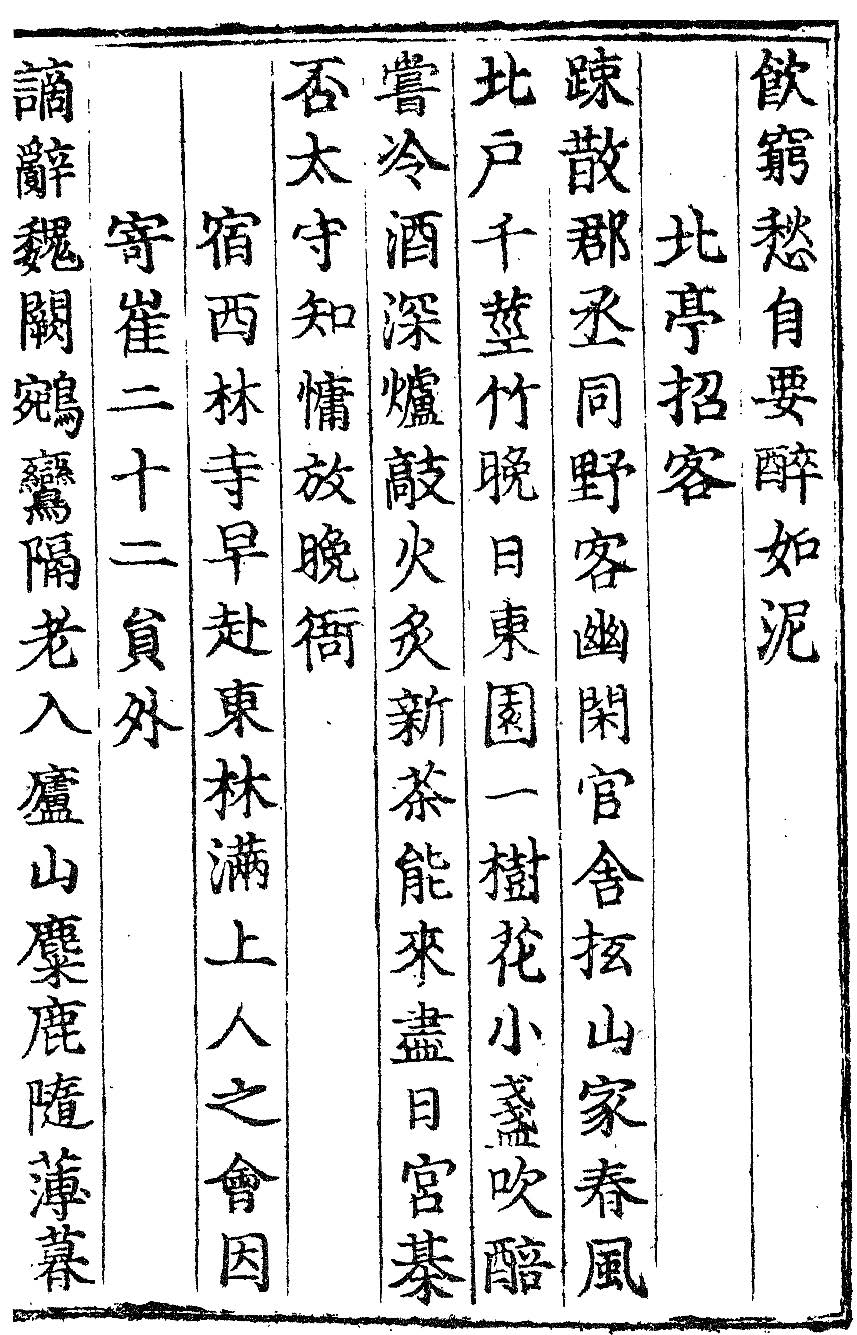 飲窮愁自要醉如泥
北亭招客
踈散郡丞同野客幽閑官舍抎山家春風
北戶千莖竹晚日東園一樹花小盞吹醅
嘗冷酒深爐敲火炙新茶能來盡日宮棊
否太守知慵放晚衙
宿西林寺早赴東林滿上人之會因
寄崔二十二員外
謫辭魏闕鵷鸞隔老入廬山麋鹿隨薄暮